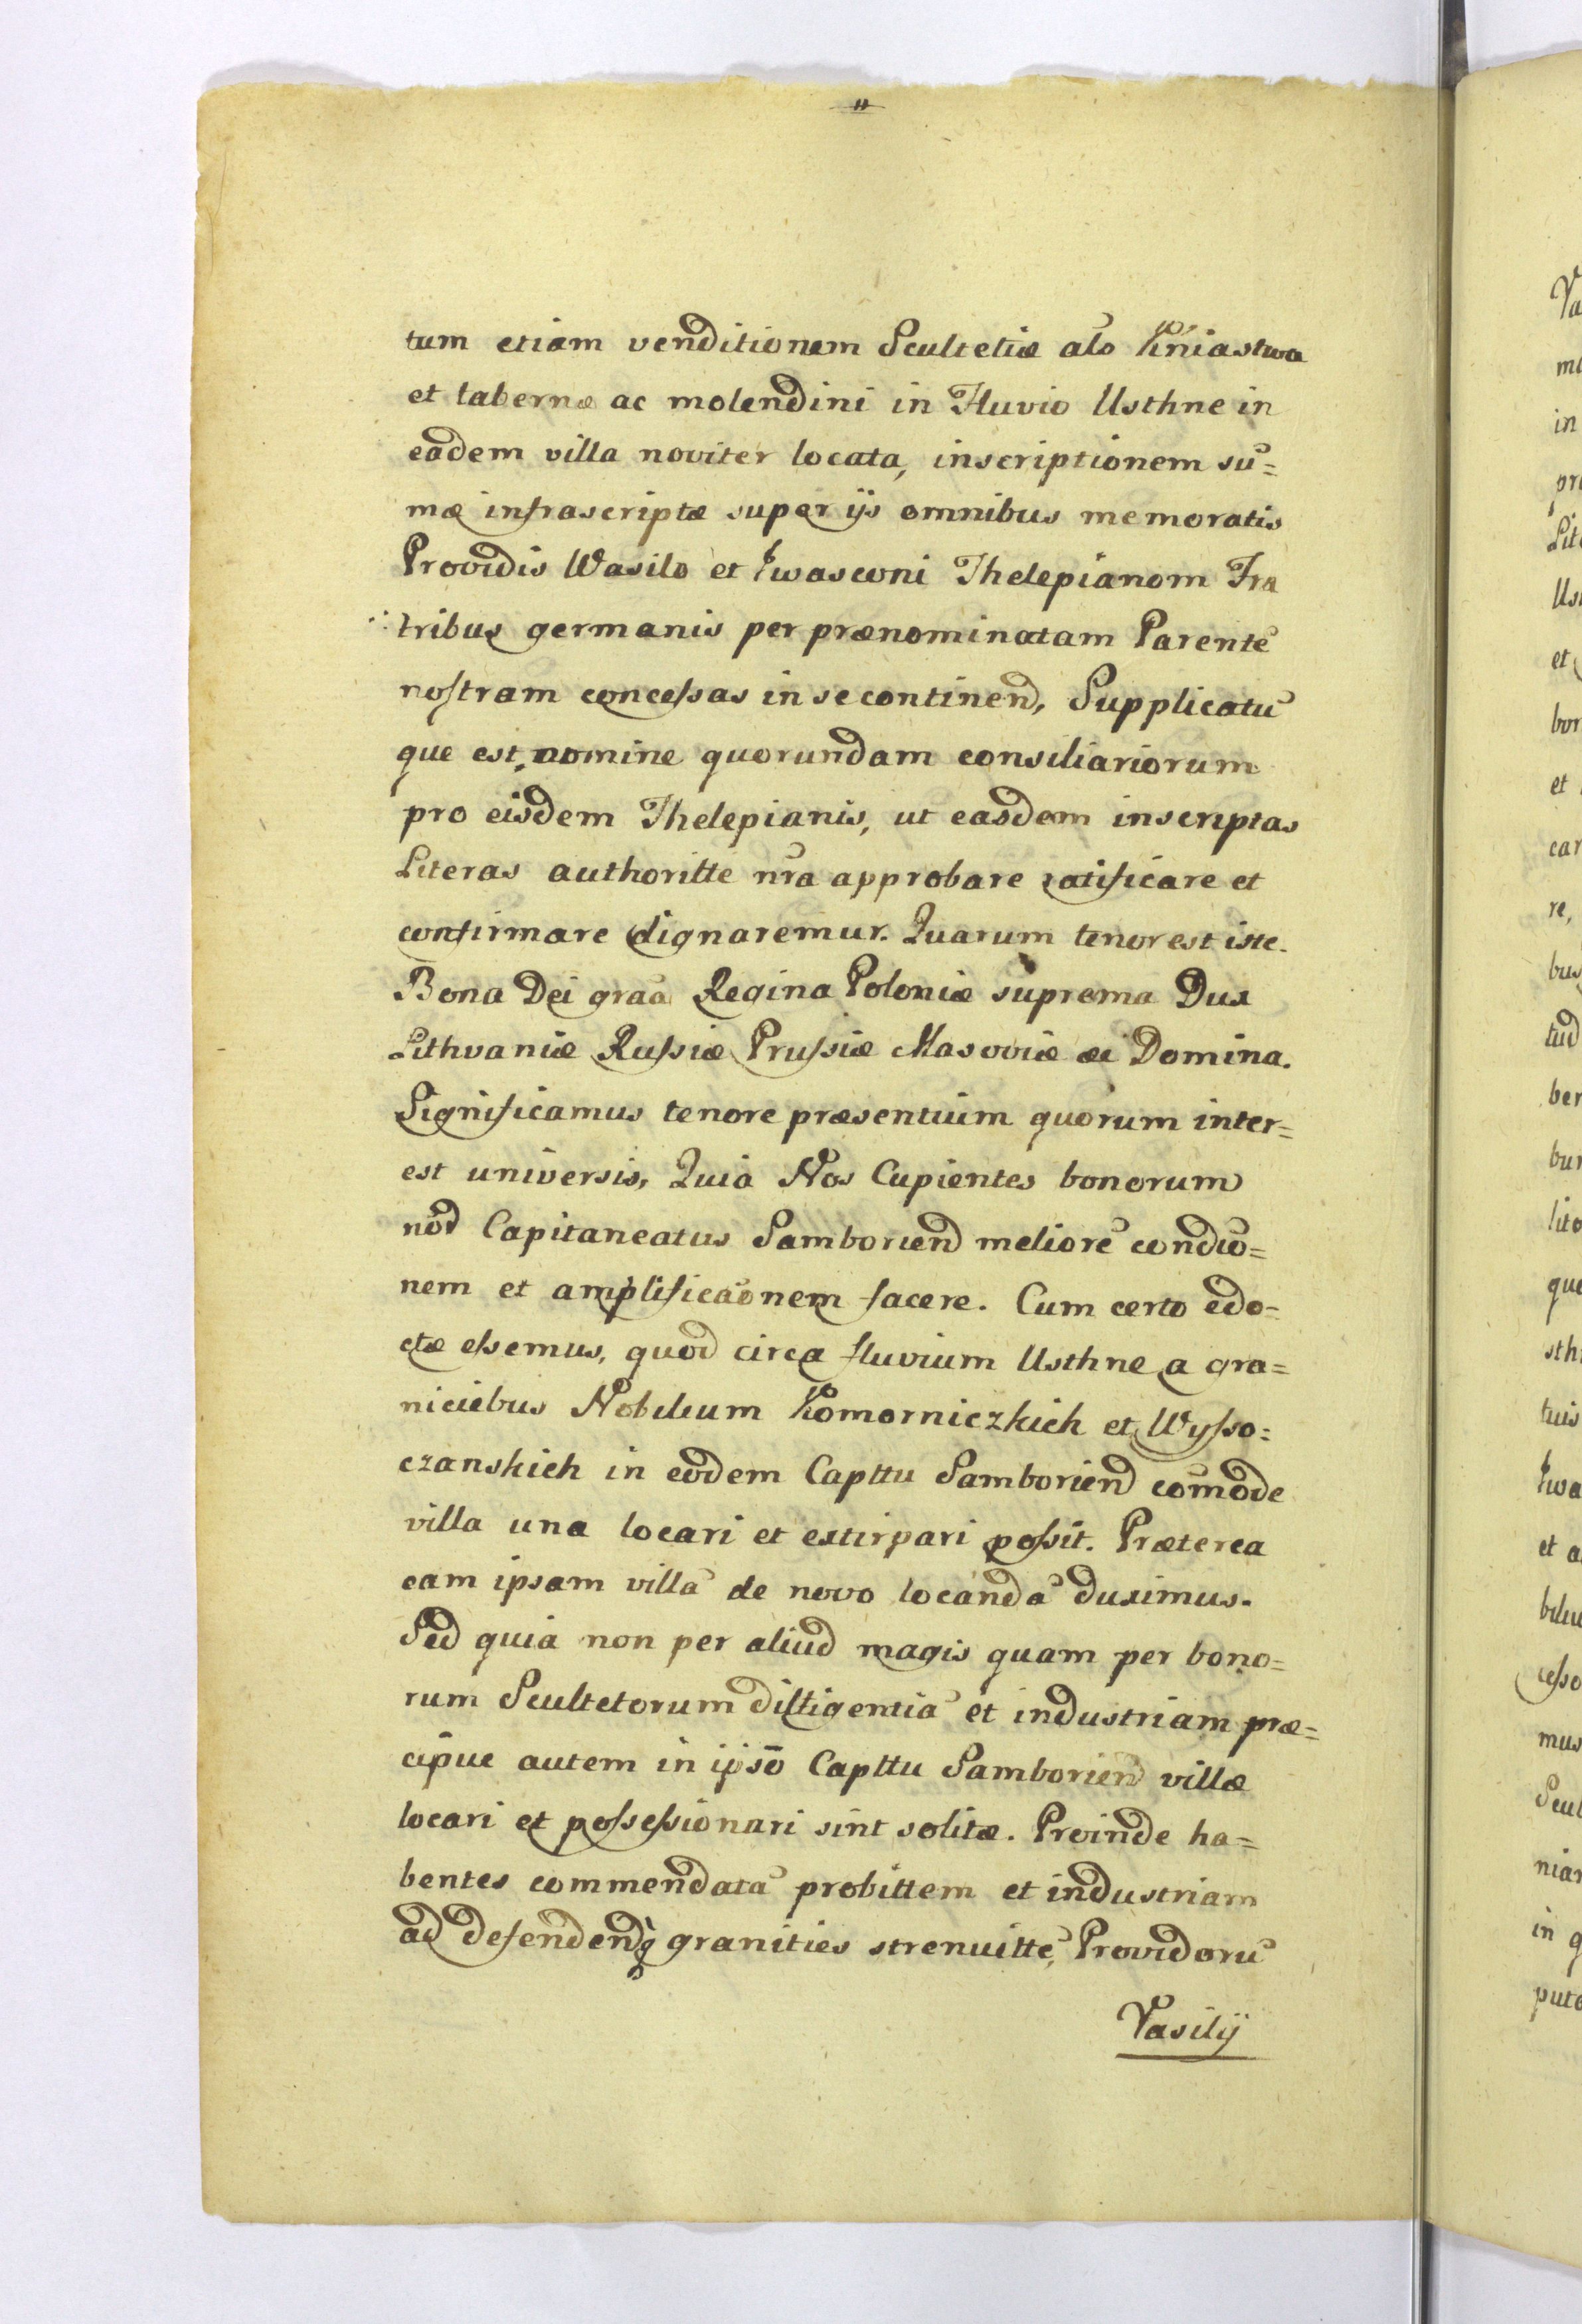 tum etiam venditionem Scultetiæ als Kniastwa
et tabernæ ac molendini in Fluvio Usthne in
eadem villa noviter locata, inscriptionem su=
mæ infrascriptæ super ijs omnibus memoratis
Providis Wasilo et Iwasconi Thelepianom Fra
tribus germanis per prænominatam Parentē
nostram concessas in se continend, Supplicatū
que est nomine quorundam consiliariorum
pro eisdem Thelepianis, ut easdem inscriptas
Literas authoritte nra approbare ratificare et
confirmare dignaremur. Quarum tenor est iste.
Bona Dei graa Regina Poloniæ suprema Dux
Lithvaniæ Russiæ Prussiæ Masoviæ æc Domina.
Significamus tenore præsentium quorum inter=
est universis, Quia Nos Cupientes bonorum
nōr Capitaneatus Samborien meliorē condio=
nem et amplificaōnem facere. Cum certo edo=
ctæ essemus, quod circa fluvium Usthne a gra=
niciebus Nobilium Komorniczkich et Wysso=
czanskich in eodem Capttu Samborien comode
villa una locari et extirpari possit. Præterea
eam ipsam villā de novo locandā duximus.
Sed quia non per aliud magis quam per bono=
rum Scultetorum diligentiā et industriam præ=
cipue autem in ipsō Capttu Samborien villæ
locari et possessionari sint solitæ. Proinde ha=
bentes commendatā probittem et industriam
ad defendend granities strenuitte, Providorū
Vasilij